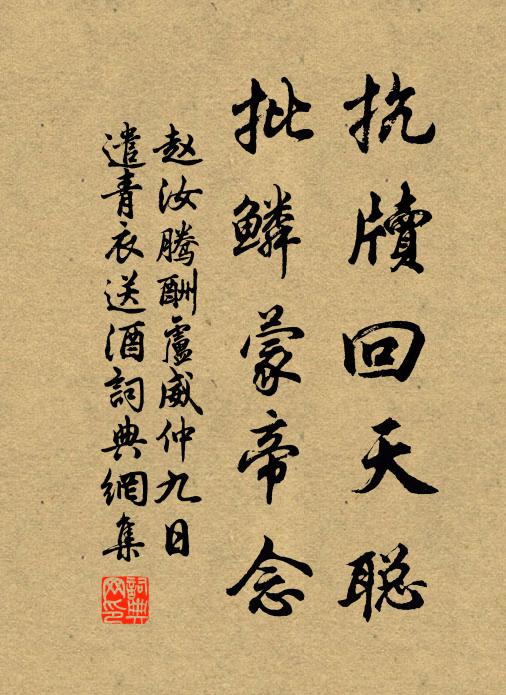 抗牍回天聪
批鳞蒙帝念
赵汝腾酬卢威仲九日
遣青衣送酒词典網集
词典网印